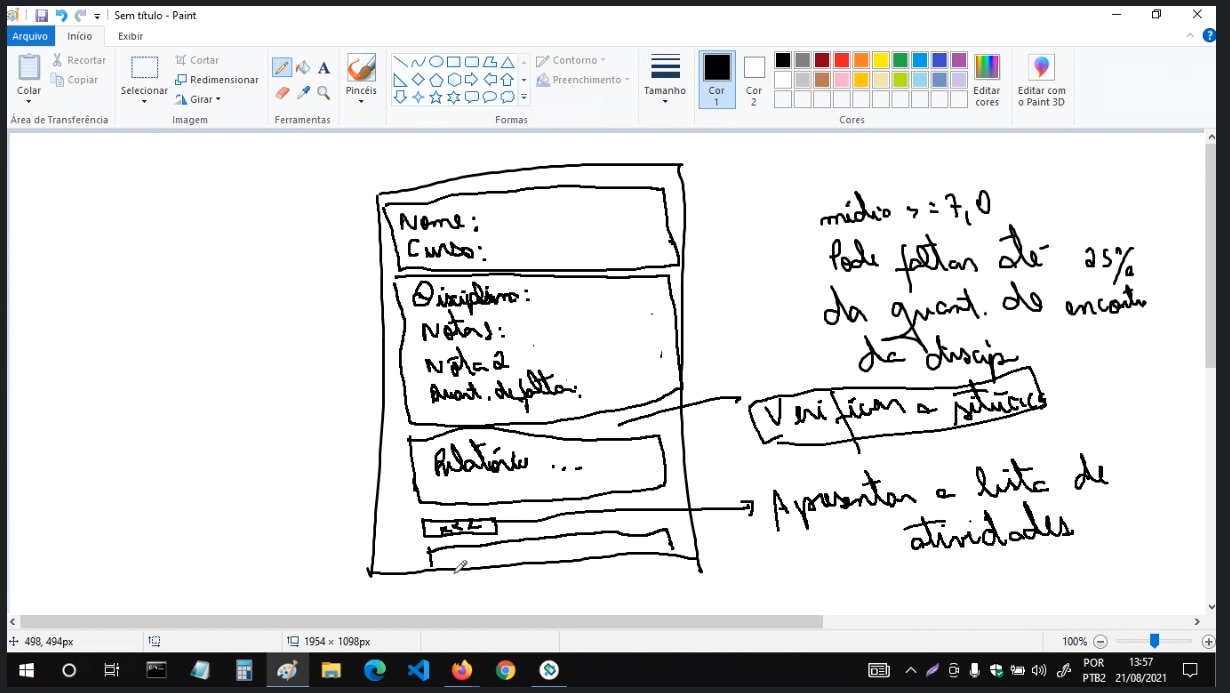 Sem título - Paint
Arquivo
Início
Exibir
Colar
Recortar
Copiar
Área de Transferência
Selecionar
Cortar
Redimensionar
Girar
Imagem
A
Ferramentas
Pincéis
Contorno
Preenchimento
Formas
Tamanho
Cor 1
Cor 2
Editar cores
Cores
Editar com o Paint 3D
Nome:
Curso:
Disciplina:
Nota 1:
Nota 2
Quant. de faltas:
Relatório ...
média >= 7,0
Pode faltar até 25%
da quant. de encontro
da discip
Verificar a situação
Apresentar a lista de
atividades
498, 494px
1954 × 1098px
100%
POR
PTB2
13:57
21/08/2021